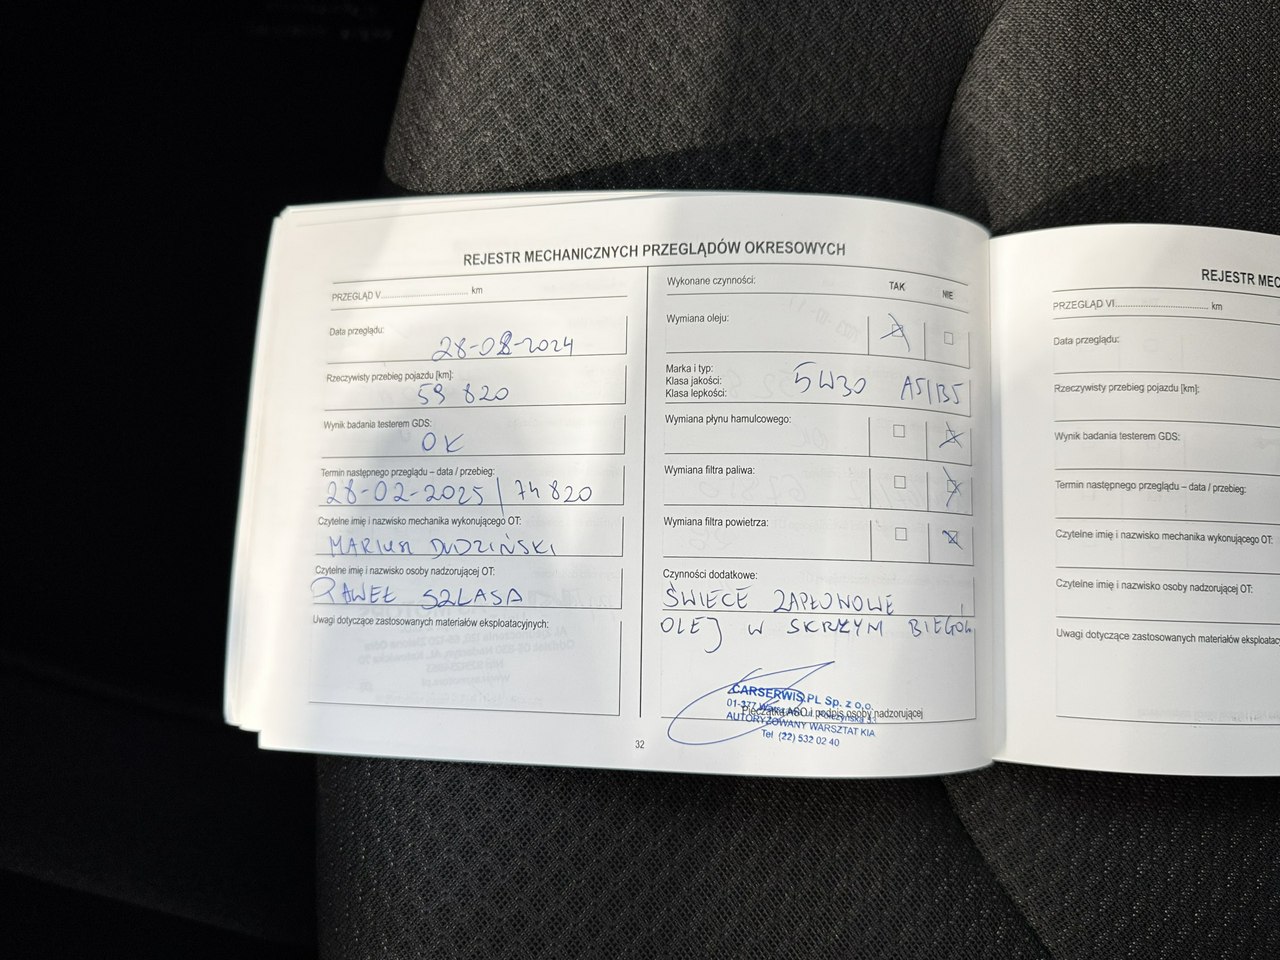 REJESTR MECHANICZNYCH PRZEGLĄDÓW OKRESOWYCH
PRZEGLĄD V................................ km
Data przeglądu:
28-02-2024
Rzeczywisty przebieg pojazdu [km]:
59 820
Wynik badania testerem GDS:
OK
Termin następnego przeglądu – data / przebieg:
28-02-2025 | 74 820
Czytelne imię i nazwisko mechanika wykonującego OT:
MARIUSZ DUDZIŃSKI
Czytelne imię i nazwisko osoby nadzorującej OT:
PAWEŁ SZLASA
Uwagi dotyczące zastosowanych materiałów eksploatacyjnych:
Wykonane czynności:
TAK
NIE
Wymiana oleju:
Marka i typ:
Klasa jakości:
Klasa lepkości:
5W30 A5/B5
Wymiana płynu hamulcowego:
Wymiana filtra paliwa:
Wymiana filtra powietrza:
Czynności dodatkowe:
ŚWIECE ZAPŁONOWE
OLEJ W SKRZYNI BIEGÓW
CARSERWIS.PL Sp. z o.o.
01-377
Pieczątka ASO i podpis osoby nadzorującej
AUTORYZOWANY WARSZTAT KIA
Tel (22) 532 02 40
32
REJESTR MEC
PRZEGLĄD VI................................ km
Data przeglądu:
Rzeczywisty przebieg pojazdu [km]:
Wynik badania testerem GDS:
Termin następnego przeglądu – data / przebieg:
Czytelne imię i nazwisko mechanika wykonującego OT:
Czytelne imię i nazwisko osoby nadzorującej OT:
Uwagi dotyczące zastosowanych materiałów eksploatac